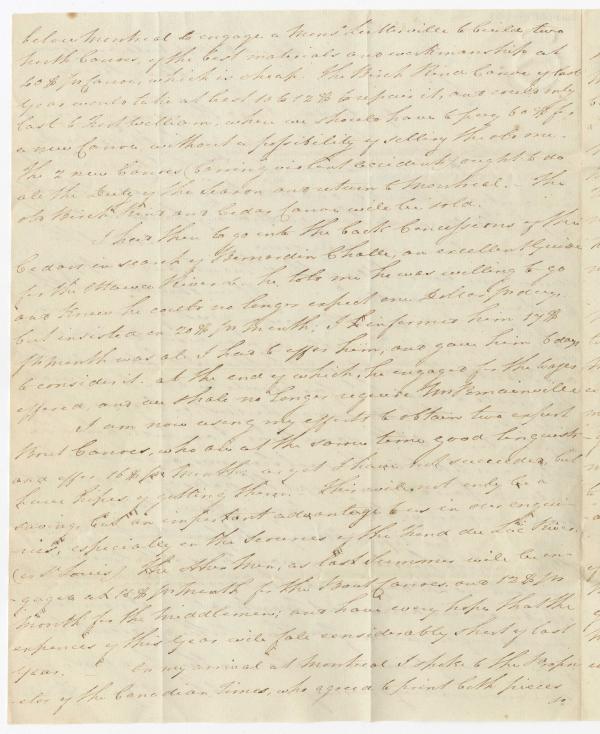 below Montreal to engage a Mons.r to build two
North Canoes, of the best materials and workmanship at
60$ pr Canoe, which is cheap. The Birch Rind Canoe of last
Year would take at best 10 to 12$ to repair it, and could only
last to Fort William, when we should have to pay 60$ for
a new Canoe, without a possibility of selling the old one.
The 2 new Canoes (barring violent accidents) ought to do
all the Duty of the Season and return to Montreal. – The
old Birch Rind and Cedar Canoe will be sold.
I had then to go into the back Concessions of the
Cedars in search of Bernardin Challe, an excellent Guide
for the Ottawa River &c. he told me he was willing to go
and knew he could no longer expect one Dollar pr day,
but insisted on 20$ pr Month; I informed him 17$
pr month was all I had to offer him, and gave him 6 days
to consider it. at the end of which, he engaged for the Wages
offered, and we shall no longer require Mr Romainville
I am now using my efforts to obtain two expert
Bout Canoes, who are at the same time good linguists
and offer 16$ pr Month. as yet I have not succeeded, but
have hopes of getting them. – This will not only be a
saving, but an important advantage to us in our enqui-
ries, especially on the Sources of the Fond du Lac River,
(or St Louis) The other Men, as last Summer will be en-
-gaged at 15$ pr month for the Bout Canoes, and 12$ pr
month for the middlemen; and have every hope that the
expences of this Year will fall considerably short of last
Year. – On my arrival at Montreal I spoke to the Propri
-etor of the Canadian Times, who agreed to print both pieces